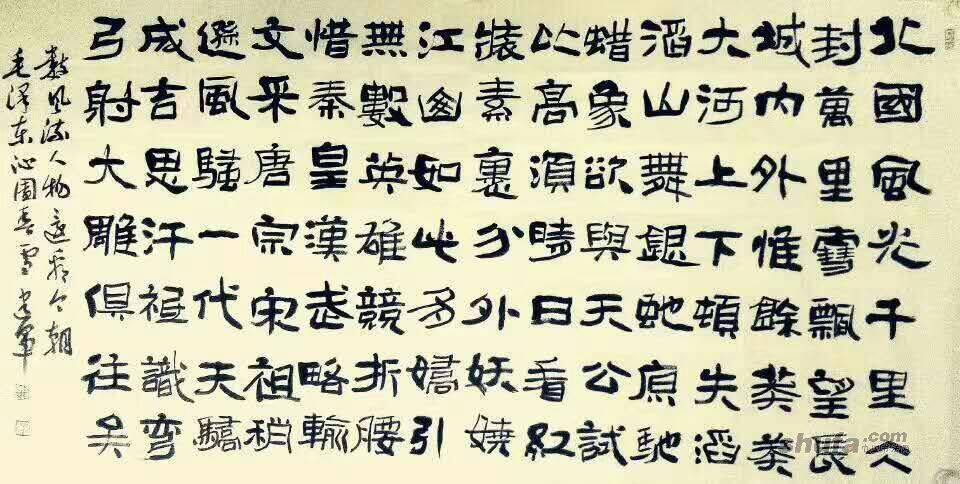 北國風光千里仌
封萬里雪飄望長
城内外惟餘莽莽
大河上下頓失滔
滔山舞銀蛇原馳
蜡象欲與天公試
比高須晴日看紅
裝素裹分外妖嬈
江山如此多嬌引
無數英雄競折腰
惜秦皇漢武略輸
文采唐宗宋祖稍
遜風騷一代天驕
成吉思汗祗識彎
弓射大雕俱往矣
數風流人物還看今朝
毛澤东沁園春雪
shufa.com